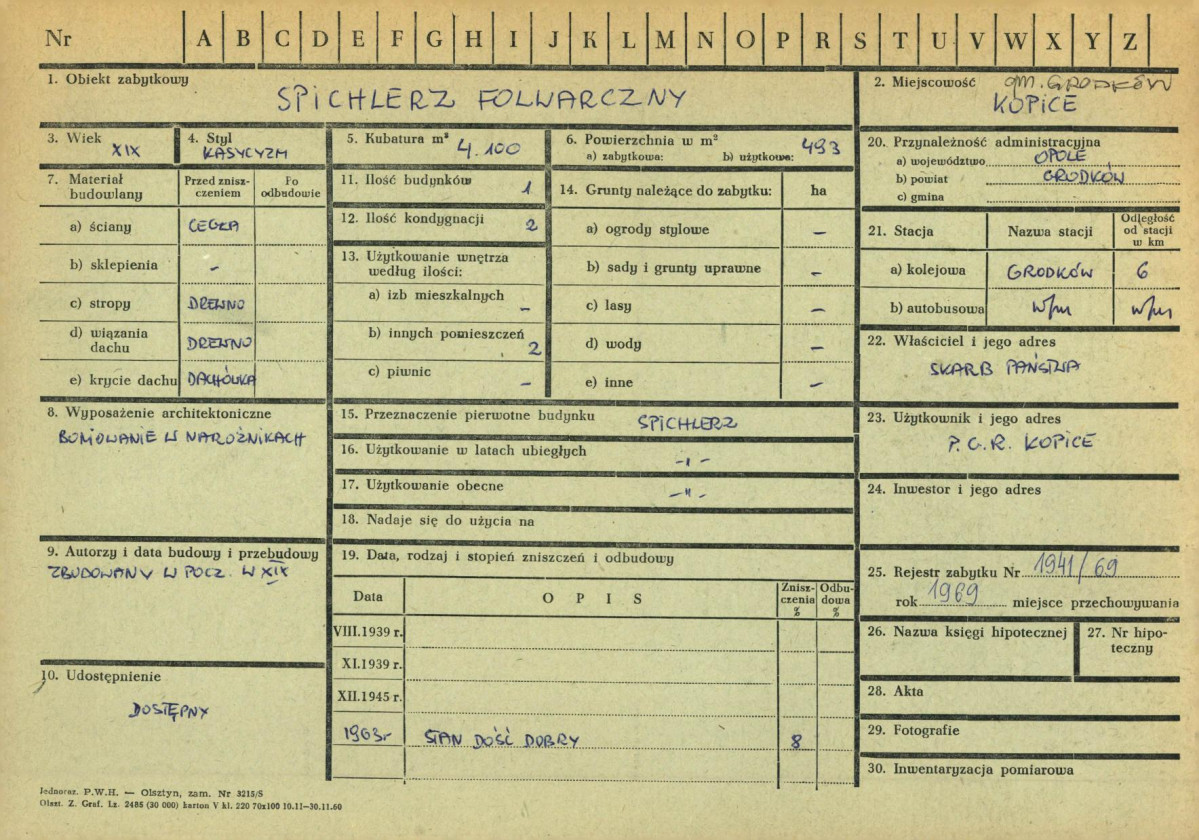 Nr A B C D E F G H I J K L M N O P R S T U V W X Y Z
1. Obiekt zabytkowy
SPICHLERZ FOLWARCZNY
2. Miejscowość gm. GRODKÓW
KOPICE
3. Wiek
XIX
4. Styl
KASYCYZM
5. Kubatura m³ 4.100
6. Powierzchnia w m²
a) zabytkowa: b) użytkowa: 493
7. Materiał budowlany
Przed zniszczeniem
Po odbudowie
a) ściany CEGŁA
b) sklepienia -
c) stropy DREWNO
d) wiązania dachu DREWNO
e) krycie dachu DACHÓWKA
8. Wyposażenie architektoniczne
BONIOWANIE W NAROŻNIKACH
9. Autorzy i data budowy i przebudowy
ZBUDOWANY W POCZ. W XIX
10. Udostępnienie
DOSTĘPNY
11. Ilość budynków 1
12. Ilość kondygnacji 2
13. Użytkowanie wnętrza według ilości:
a) izb mieszkalnych -
b) innych pomieszczeń 2
c) piwnic -
14. Grunty należące do zabytku: ha
a) ogrody stylowe -
b) sady i grunty uprawne -
c) lasy -
d) wody -
e) inne -
15. Przeznaczenie pierwotne budynku SPICHLERZ
16. Użytkowanie w latach ubiegłych -"-
17. Użytkowanie obecne -"-
18. Nadaje się do użycia na
19. Data, rodzaj i stopień zniszczeń i odbudowy
Data
O P I S
Zniszczenia %
Odbudowa %
VIII.1939 r.
XI.1939 r.
XII.1945 r.
1963r STAN DOŚĆ DOBRY 8
20. Przynależność administracyjna
a) województwo OPOLE
b) powiat GRODKÓW
c) gmina
21. Stacja
Nazwa stacji
Odległość od stacji w km
a) kolejowa GRODKÓW 6
b) autobusowa w/m w/m
22. Właściciel i jego adres
SKARB PAŃSTWA
23. Użytkownik i jego adres
P.G.R. KOPICE
24. Inwestor i jego adres
25. Rejestr zabytku Nr 1941/69
rok 1969 miejsce przechowywania
26. Nazwa księgi hipotecznej
27. Nr hipoteczny
28. Akta
29. Fotografie
30. Inwentaryzacja pomiarowa
Jednoraz. P.W.H. — Olsztyn, zam. Nr 3215/S
Olszt. Z. Graf. Lz. 2485 (30 000) karton V kl. 220 70x100 10.11—30.11.60